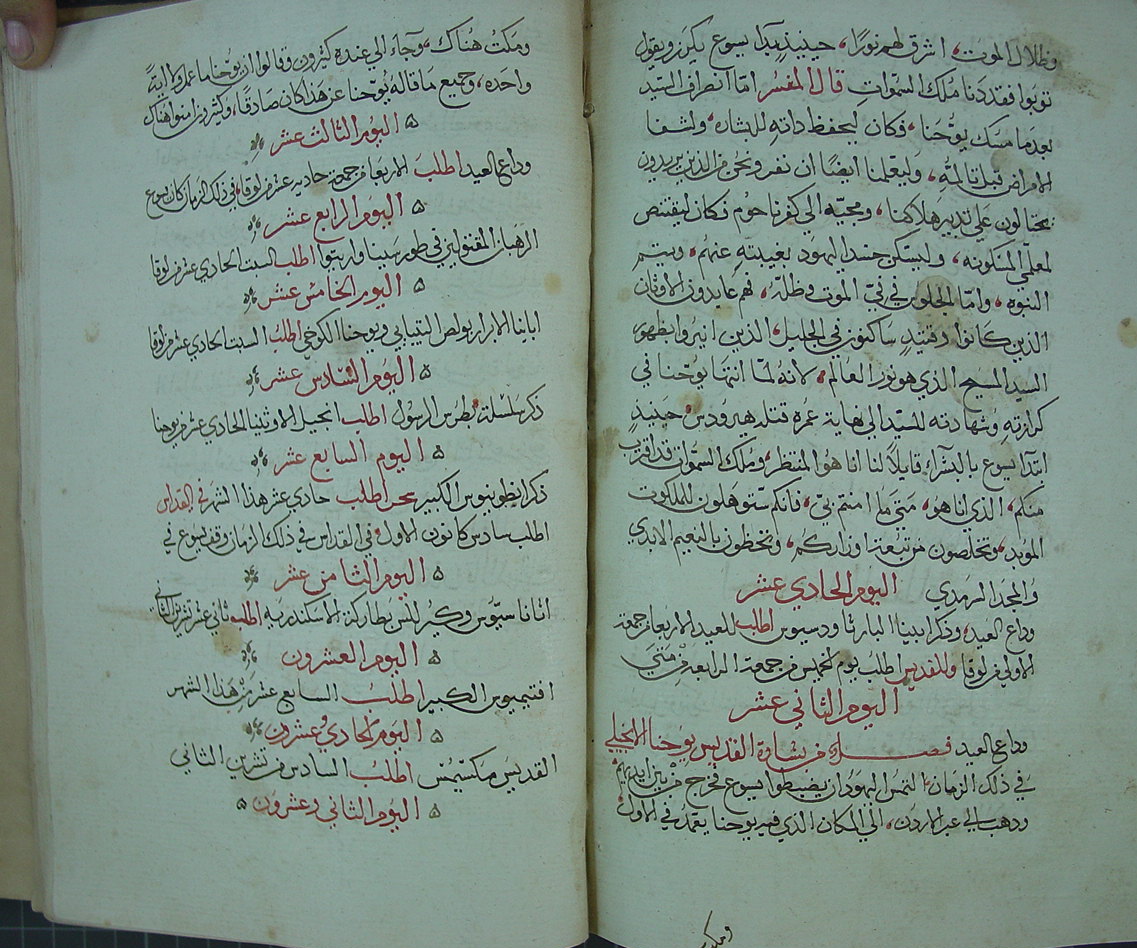 وظلال الموت، اشرق لهم نورًا، حينيذٍ بدا يسوع يكرز ويقول
توبوا فقد دنا ملك السموات قال المفسر امّا انصراف السيد
بعدما مسك يوحنا، فكان ليحفظ ذاته للبشاره، ولشفا
الامراض قبل تالمه، وليعلمنا ايضًا ان نفر ونحن من الذين يريدون
يحتالون علي تدبير هلاكنا، ومجيّه الي كفرناحوم فكان ليقتنص
لمعلمي المسكونه، وليسكن حسد اليهود بغيبته عنهم، ويتم
النبوه، وامّا الجلوس في فيّ الموت وظله، فهم عابدون الاوثان
الذين كانوا وقتيذٍ ساكنون في الجليل، الذين انيروا بظهور
السيد المسيح الذي هو نور العالم، لانه لمّا انتها يوحنا في
كرازته وشهادته للسيد الي نهاية عمره قتله هيرودس، حينيذٍ
ابتدا يسوع بالبشراء، قايلاً لنا انا هو المنتظر، وملك السموات قد اقرب
منكم، الذي انا هو، متي ما امنتم بيّ، فانكم ستوهلون للملكوت
الموبد، وتخلصون من تبعة اوزاركم، وتحظون بالنعيم الابدي
والمجد السرمدي اليوم الحادي عشر
وداع العيد، وذكر ابينا البار ثاودسيوس اطلب للعيد الاربعا من جمعة
الاولي من لوقا وللقديس اطلب يوم الخميس من جمعة الرابعة من متي
اليوم الثاني عشر
وداع العيد فصل من بشارة القديس يوحنا الانجيلي
في ذلك الزمان، التمس اليهود ان يضبطوا يسوع فخرج من بين ايديهم
وذهب الي عبر الاردن، الي المكان الذي فيه يوحنا يعمد في الاول
ومكث
ومكث هناك، وجاء الي عنده كثيرون وقالوا ان يوحنا ما عمل ولا ايةً
واحده، وجميع ما قاله يوحنا عن هذا كان صادقًا، وكثيرون امنوا هناك
اليوم الثالث عشر
وداع العيد اطلب الاربعا من جمعة حادية عشر من لوقا، في ذلك الزمان كان يسوع
اليوم الرابع عشر
الرهبان المقتولين في طور سينا وارينوا اطلب السبت الحادي عشر من لوقا
اليوم الخامس عشر
ابايتا الابرار بولص التيبايي ويوحنا الكوخي اطلب السبت الحادي عشر من لوقا
اليوم السادس عشر
ذكر سلسلة بطرس الرسول اطلب انجيل الاوثينا الحادي عشر من يوحنا
اليوم السابع عشر
ذكر انطونيوس الكبير سحر اطلب حادي عشر هذا الشهر في القداس
اطلب سادس كانون الاول في القداس في ذلك الزمان وقف يسوع في
اليوم الثامن عشر
اثاناسيوس وكيرللس بطاركة الاسكندريه اطلب ثاني عشر تشرين الثاني
اليوم العشرون
افتيميوس الكبير اطلب السابع عشر من هذا الشهر
اليوم الحادي وعشرون
القديس مكسيمس اطلب السادس من تشرين الثاني
اليوم الثاني وعشرون